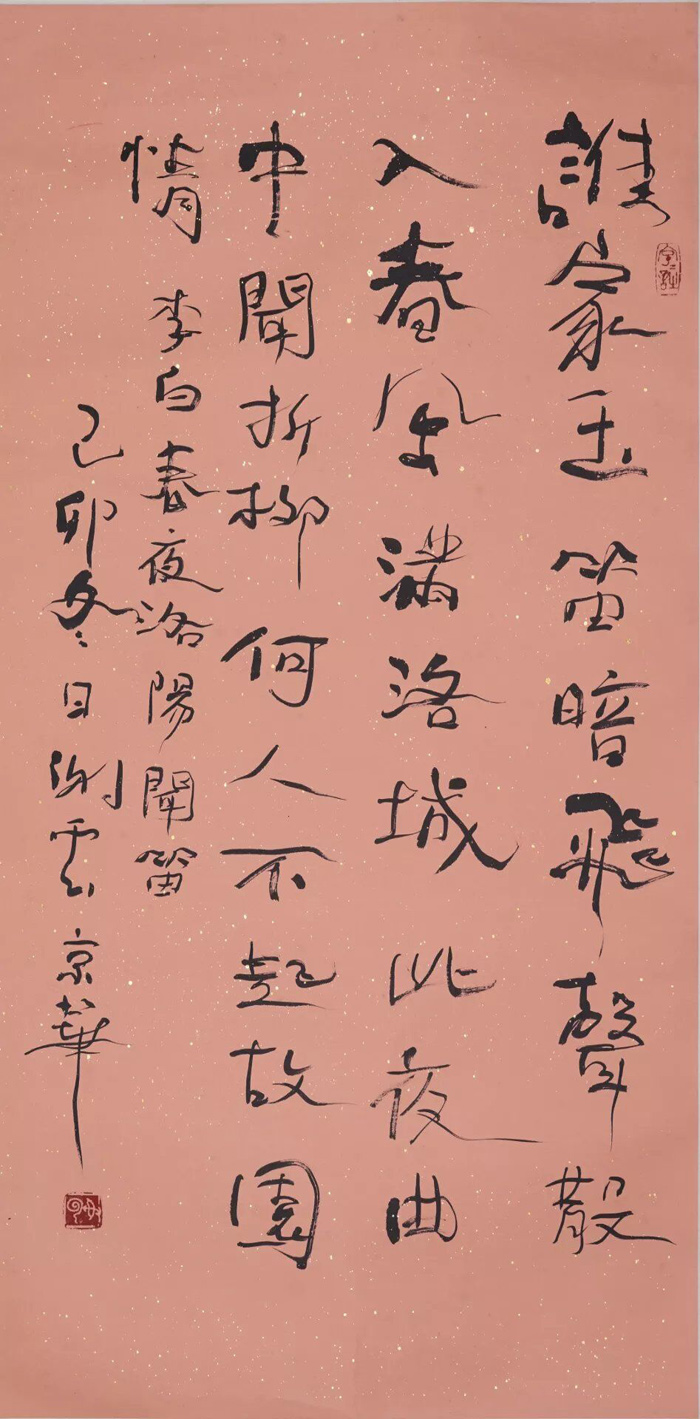 誰家玉笛暗飛聲散
入春風滿洛城此夜曲
中聞折柳何人不起故園
情 李白春夜洛陽聞笛
己卯冬日謝雲京華